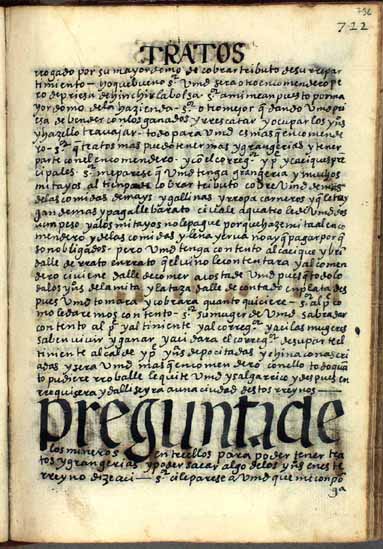 736
722
TRATOS
rrogado por su mayordomo de cobrar tributo de su rrepar
timiento yo que bueno s.r Vmd sera otro encomendero pe
ro de priesa de hinchir la bolsa s.r a mi me an puesto por ma
yordomo de la hazienda s.r o tro mejor q dando Vmd pri
esa de bender con los ganados y rrescatar y ocupar los yns
y hazello trauajar todo para Vmd es mas q encomende
ro s.r q tratos mas puedo tener mas y grangerias y tener
parte con el encomendero y co el correg.r y p.e y caciques prin
cipales s.r me parese q Vmd tenga grangeria y muchos
mitayos al tienpo de cobrar tributo cobre Vmd de mas
de las comidas de mays y gallinas y rropa carneros que le tray
gan demas y pagalle barato
un peso y a los mitayos no le pague porque haze mita al enco
mendero y de las comidas y leña y bricho no ay q pagar por q
son obligados pero Vmd tenga contento al cacique y bri
dalle de rrato en rrato que el uino le contentara y al comen
dero ci uiene dalle de comer a costa de Vmd pues q todo lo
da los yns de la mita y la taza dalle de contado en plata des
pues Vmd tomara y cobrara quanto quiciere s.r al p.e co
mo le daremos contento s.r su muger de Vmd sabra dar
contento al p.e y al tiniente y al correg.r y aci las mugeres
saben uiuir y ganar y ayudara el correg.r de su parte el
timiente alcalde y p.e yns depocitadas y chinaconas cri
adas y sera Vmd mas q encomendero con ello todo qua
to pudiere rroballe le quite Vmd y salga rrico y despues en
rrequisera y dalli se yra a una ciudad destos rreynos
Pregunta de
los mineros entre ellos para poder tener tra
tos y grangerias y poder sacar algo de los yns en este
rreyno dize aci s.r ci le parese a Vmd que mi conpo
ga